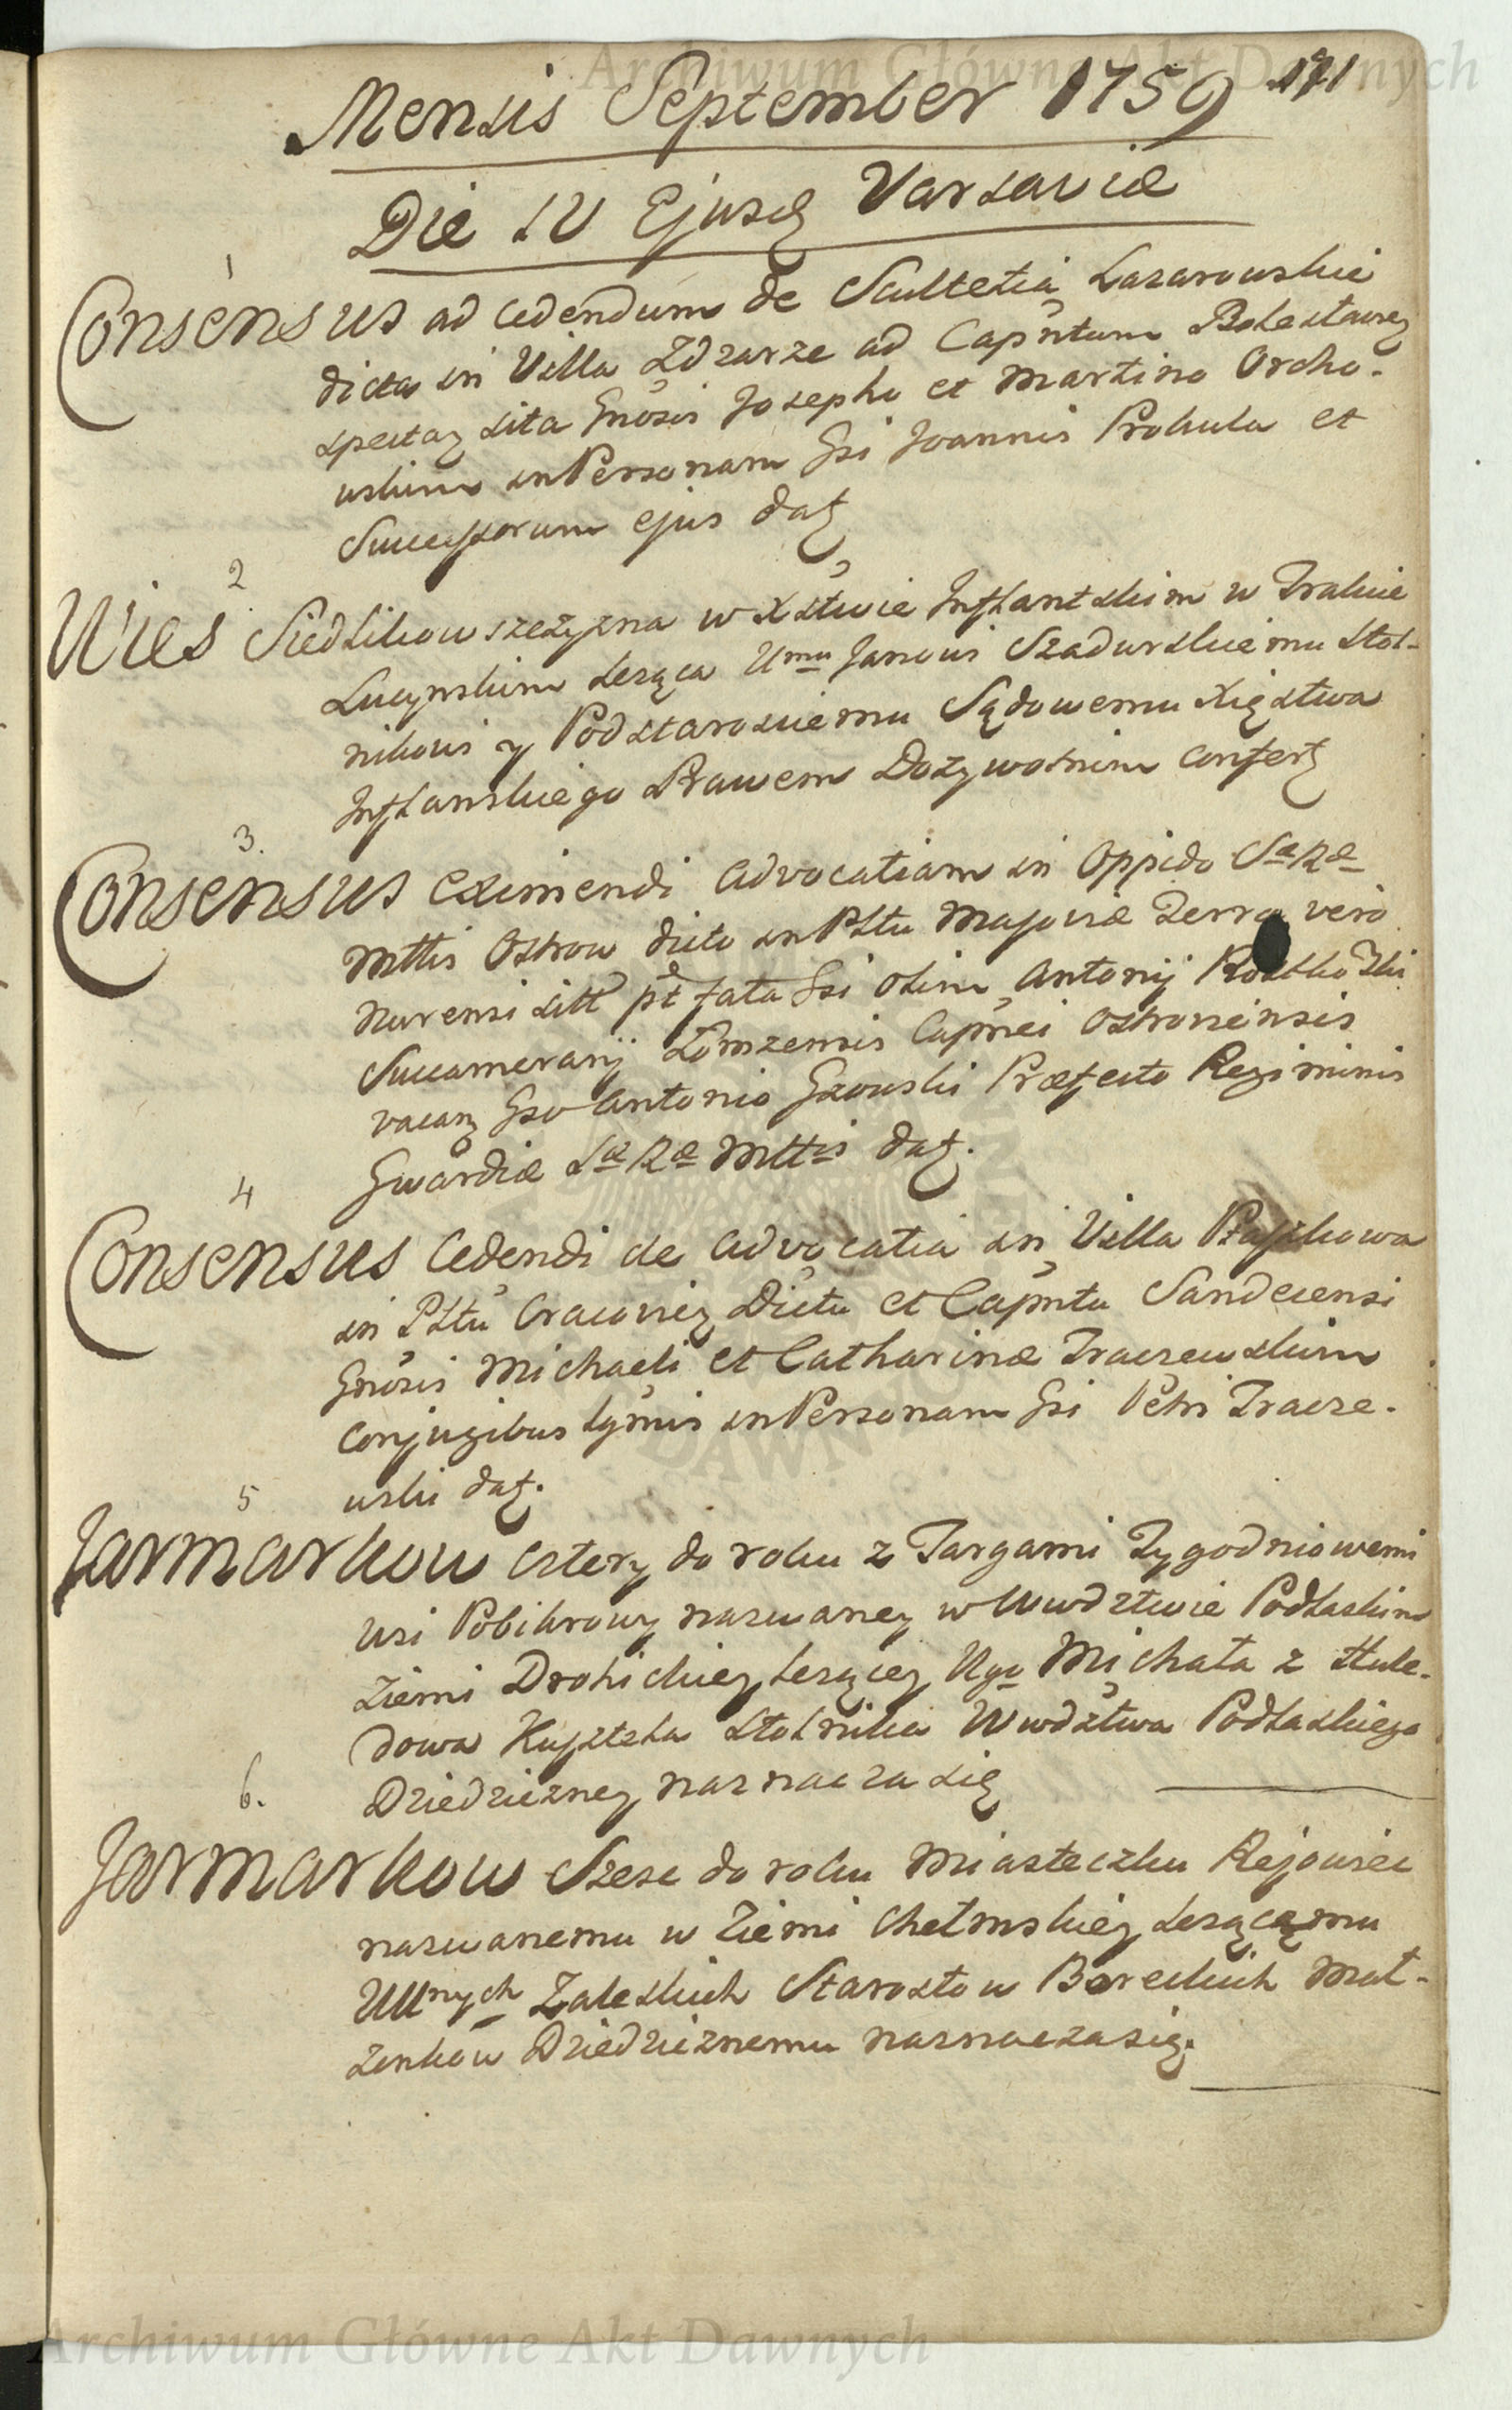 Archiwum Główne Akt Dawnych
Mensis September 1759 191
Die IV Ejusd Varsaviæ
1
Consensus ad cedendum de Scultetia Lazarowskie
dicta in Villa Zdzarze ad Capntum Bolestaviez
spectaz sita Gnosis Josepho et Martino Orcho-
wskim in Personam Gsi Joannis Prokula et
Successorum ejus datz
2
Wies Siedlikowszczyzna w Xstwie Inflantskim w Trakcie
Lucynskim leząca Umu Janowi Szadurskiemu Stol-
nikowi y Podstarosciemu Sądowemu Xięstwa
Inflanskiego Prawem Dozywotnim confertz
3.
Consensus eximendi Advocatiam in Oppido Sæ Ræ
Mttis Ostrow dicto in Pltu Masoviæ Terra vero
Nurensi sitt pt fata Gsi olim Antonij
Succamerarij Łomzensis Capnei Ostroviensis
vacanz Gso Antonio Gzowski Præfecto Regiminis
Gwardiæ Sæ Ræ Mttis datz.
4
Consensus Cedendi de Advocatia in Villa Ptaszkowa
in Pltu Cracoviez Dictu et Capntu Sandecensi
Gnosis Michaeli et Catharinæ Traczewskim
Conjugibus lgmis in Personam Gsi Petri Tracze-
wski datz.
5
Jarmarkow cztery do roku z Targami Tygodniowemi
wsi Pobikrowy nazwaney w Wwdztwie Podlaskim
Ziemi Drohickiey lezącey Ugo Michała z Hule-
dowa Kuszla Stolnika Wwdztwa Podlaskiego
Dziedziczney naznacza się
6.
Jarmarkow Szesc do roku Miasteczku Rejowiec
nazwanemu w Ziemi Chełmskiey lezącemu
UUnych Zaleskich Starostow Boreckich Mał-
zonkow Dziedzicznemu naznacza się.
Archiwum Główne Akt Dawnych